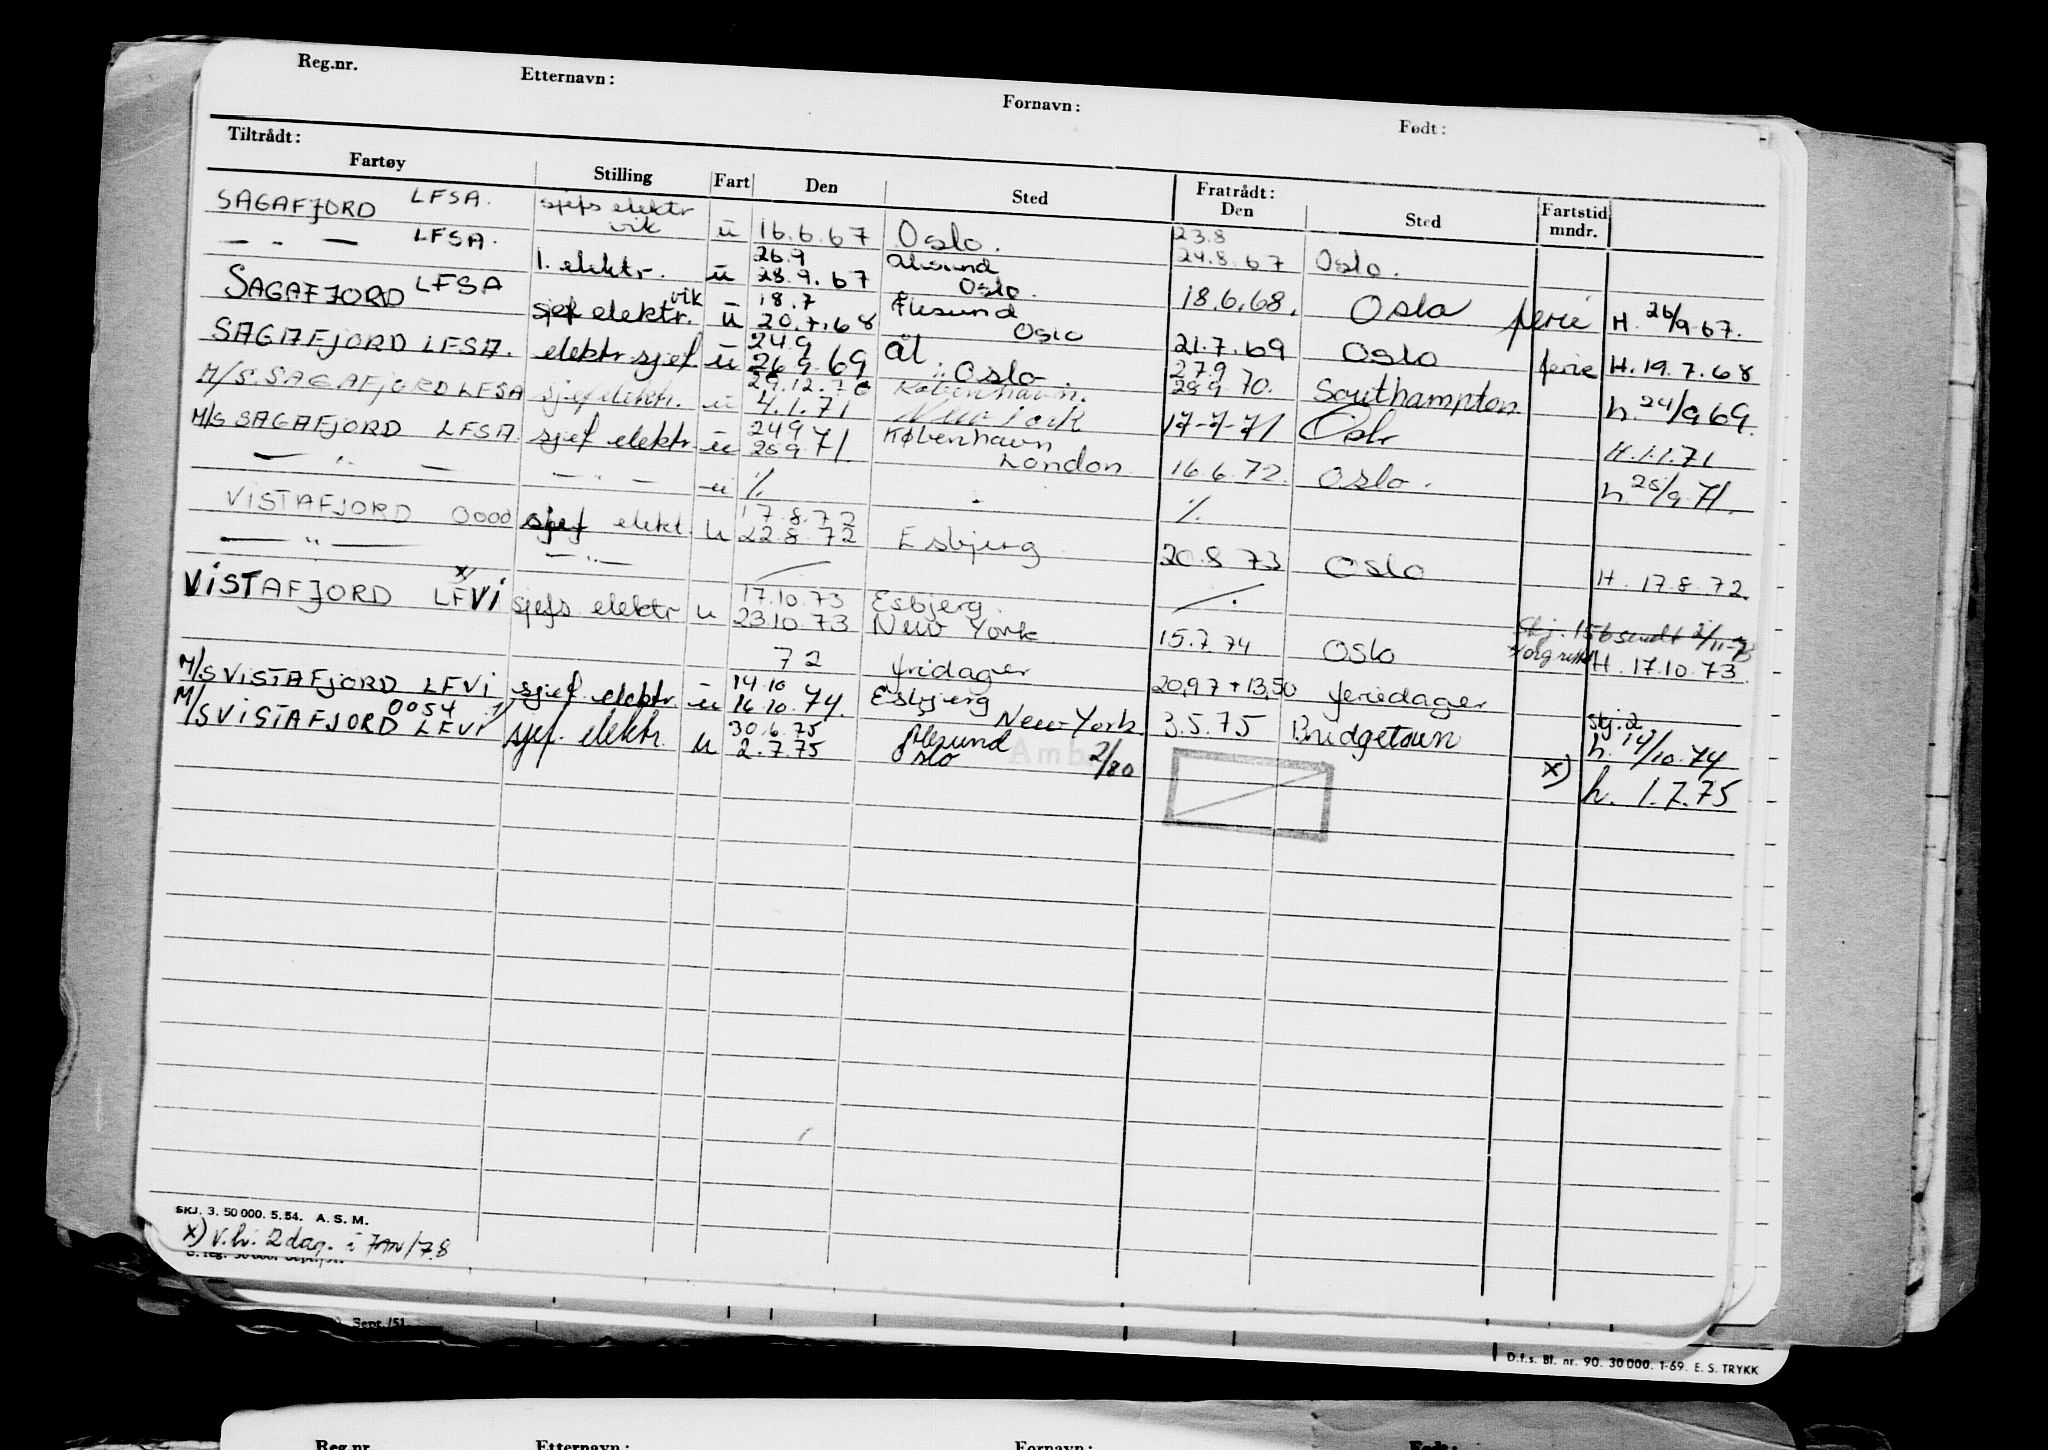 Reg.nr. Etternavn: Fornavn: Født:
Tiltrådt: Fratrådt:
Fartøy Stilling Fart Den Sted Den Sted Fartstid mndr.
SAGAFJORD LFSA. sjefs elektr vik u 16.6.67 Oslo. 23.8 24.8.67 Oslo.
— " — LFSA. 1. elektr. u 26.9 28.9.67 Ålesund Oslo. 18.6.68. Oslo ferie H. 26/9.67.
SAGAFJORD LFSA sjef elektr. vik u 18.7 20.7.68 Ålesund Oslo 21.7.69 Oslo ferie H. 19.7.68
SAGAFJORD LFSA. elektr.sjef. u 24.9 26.9.69 Ål Oslo. 27.9 28.9.70. Southampton h. 24/9 69.
M/S. SAGAFJORD LFSA sjef elektr. u 29.12.70 4.1.71 København. New York 17-7-71 Oslo H.1.1.71
M/S SAGAFJORD LFSA sjef elektr. u 24.9 25.9.71. København London 16.6.72. Oslo. h. 25/9.71.
— " — — " — u ⁒ " ⁒
VISTAFJORD 0000 sjef elekt. u 17.8.72 22.8.72 Esbjerg 20.8.73 Oslo H. 17.8.72.
— " — — " —
VISTAFJORD LFVI x) sjefs elektr u 17.10.73 23.10.73 Esbjerg. New York 15.7.74 Oslo H. 17.10.73.
72 fridager 20,97 + 13,50 feriedager
M/S VISTAFJORD LFVI sjef. elektr. u 14.10 16.10.74. Esbjerg New York 3.5.75 Bridgetown skj. 2 h. 14/10.74
M/S VISTAFJORD 0054 LFVI sjef. elektr. u 30.6.75 2.7.75 Ålesund Oslo 2/80 x) h. 1.7.75
SKJ. 3. 50 000. 5.54. A. S. M.
x) v.h. 2 dag. i JAN/78
Sept./51
D.f.s. Bl. nr. 90. 30 000. 1-69. E. S. TRYKK
Reg.nr. Etternavn: Fornavn: Født: